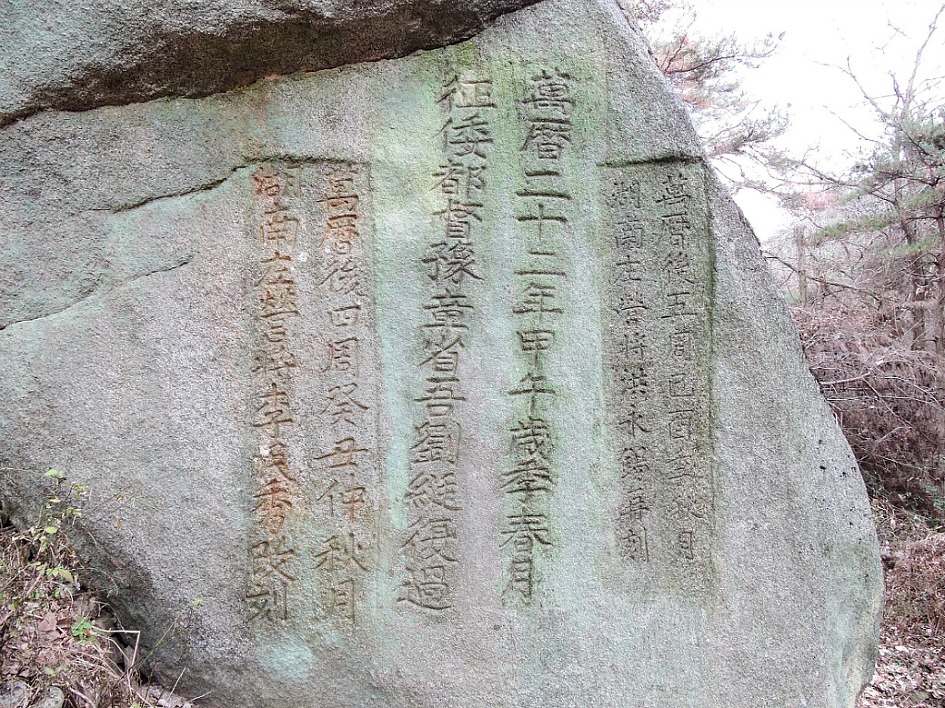 萬曆後五周己酉秋月
湖南左營將洪永錫再刻
萬曆二十二年甲午歲季春月
征倭都督豫章省吾劉綎復過
萬曆後四周癸丑仲秋月
湖南左營將李秀改刻